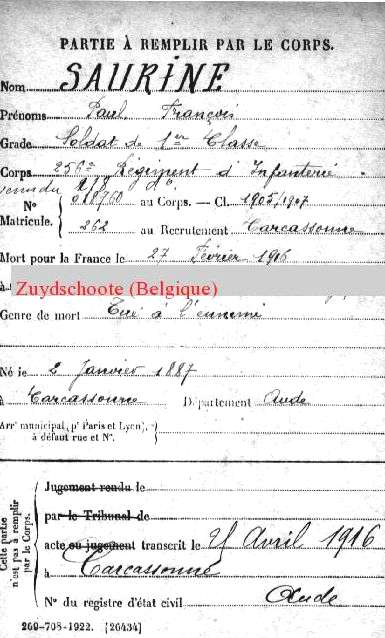 PARTIE À REMPLIR PAR LE CORPS.
Nom SAURINE
Prénoms Paul François
Grade Soldat de 1ère Classe
Corps 256e Régiment d'Infanterie
venu du 2/8
N° 018760 au Corps. — Cl. 1905/1907
Matricule. 262 au Recrutement Carcassonne
Mort pour la France le 27 Février 1916
à Zuydschoote (Belgique)
Genre de mort Tué à l'ennemi
Né le 2 Janvier 1887
à Carcassonne Département Aude
Arrt municipal (pr Paris et Lyon),
à défaut rue et N°.
Cette partie
n'est pas à remplir
par le Corps.
Jugement rendu le
par le Tribunal de
acte ou jugement transcrit le 25 Avril 1916
à Carcassonne
Aude
N° du registre d'état civil
269-708-1922. [26434]